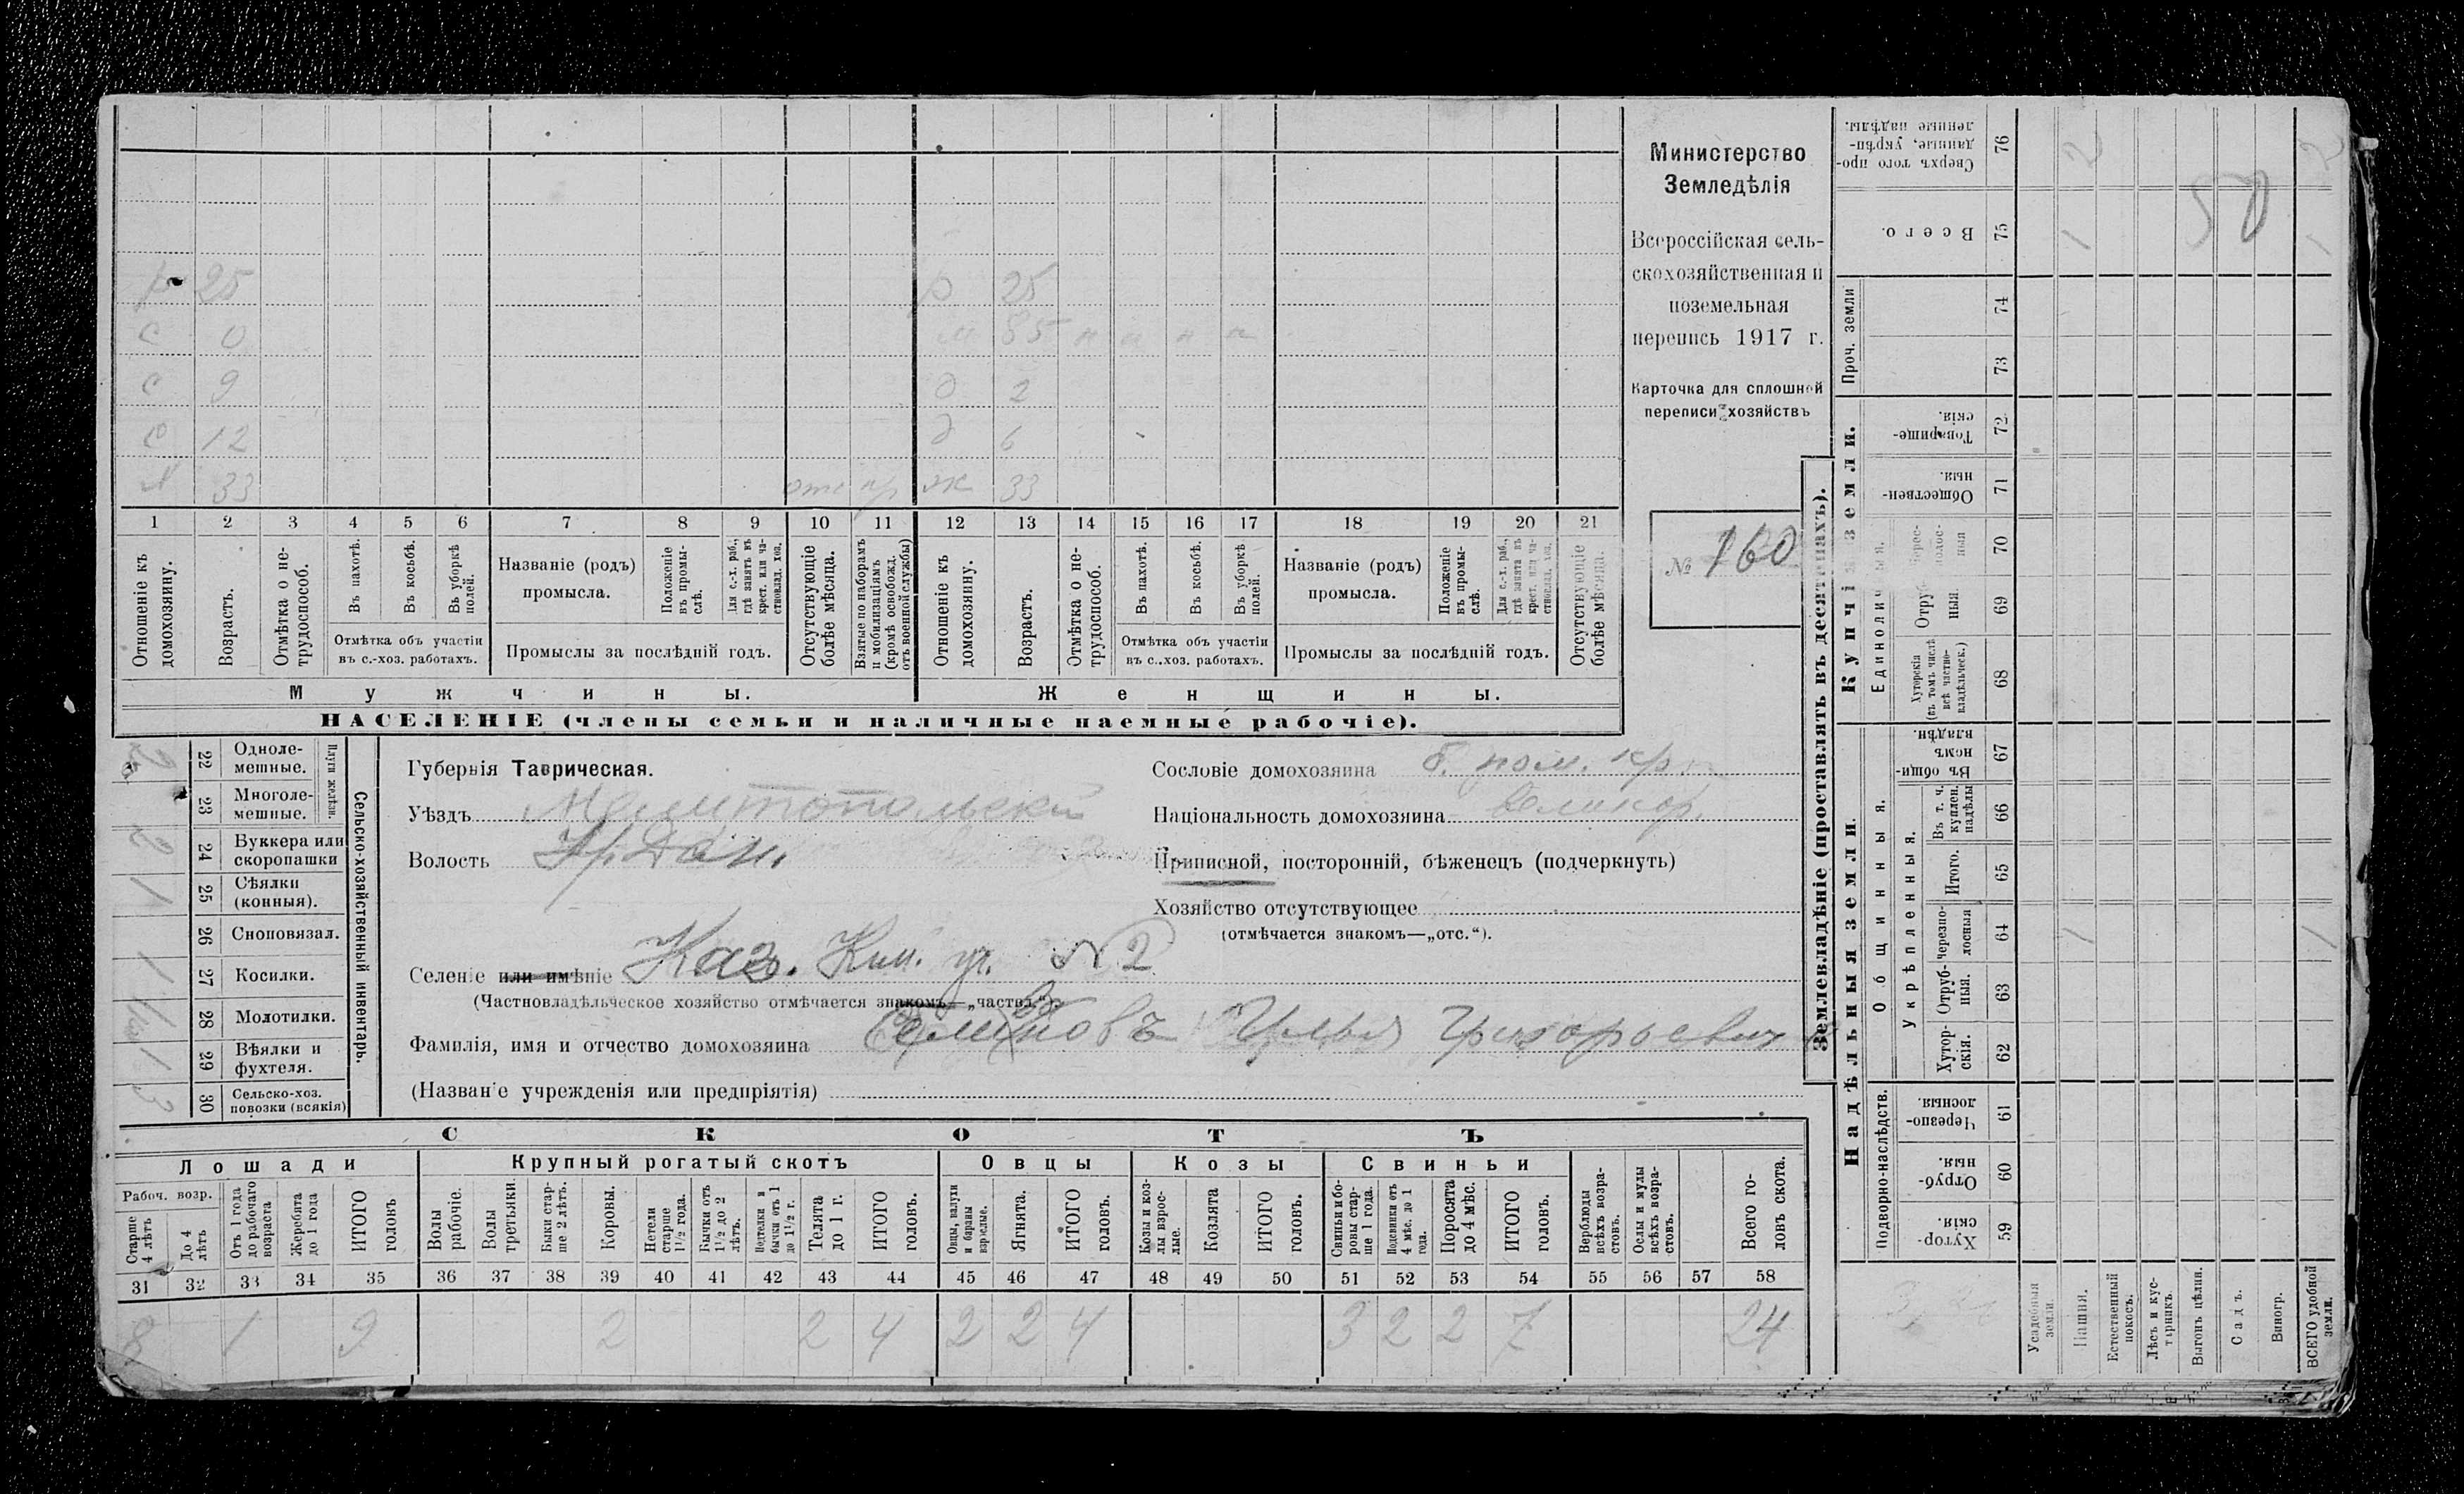 р 25 р 25
с 0 м 85 н н н н
с 9 д 2
с 12 д 6
33 отс ж 33
1 2 3 4 5 6 7 8 9 10 11 12 13 14 15 16 17 18 19 20 21
Отношеніе къ домохозяину.
Возрастъ.
Отмѣтка о нетрудоспособ.
Въ пахотѣ.
Въ косьбѣ.
Въ уборкѣ полей.
Отмѣтка объ участіи
въ с.-хоз. работахъ.
Названіе (родъ)
промысла.
Положеніе въ промыслѣ.
Для с.-х. раб., гдѣ занятъ въ крест. или частновлад. хоз.
Промыслы за послѣдній годъ.
Отсутствующіе болѣе мѣсяца.
Взятые по наборамъ и мобилизаціямъ (кромѣ освобожд. отъ военной службы)
Отношеніе къ домохозяину.
Возрастъ.
Отмѣтка о нетрудоспособ.
Въ пахотѣ.
Въ косьбѣ.
Въ уборкѣ полей.
Отмѣтка объ участіи
въ с.-хоз. работахъ.
Названіе (родъ)
промысла.
Положеніе въ промыслѣ.
Для с.-х. раб., гдѣ занята въ крест. или частновлад. хоз.
Промыслы за послѣдній годъ.
Отсутствующіе болѣе мѣсяца.
Мужчины.
Женщины.
НАСЕЛЕНІЕ (члены семьи и наличные наемные рабочіе).
Министерство
Земледѣлія
Всероссійская сель-
скохозяйственная и
поземельная
перепись 1917 г.
Карточка для сплошной
переписи хозяйствъ
№ 160
Сельско-хозяйственный инвентарь.
Плуги желѣзн.
22 Одноле-
мешные.
23 Многоле-
мешные.
24 Буккера или
скоропашки
2
25 Сѣялки
(конныя).
1
26 Сноповязал.
27 Косилки.
1
28 Молотилки.
29 Вѣялки и
фухтеля.
1
30 Сельско-хоз.
повозки (всякія)
3
Губернія Таврическая.
Уѣздъ Мелитопольскій
Волость
Селеніе или имѣніе Каз. № 2
(Частновладѣльческое хозяйство отмѣчается знакомъ—„частвл.“)
Фамилія, имя и отчество домохозяина Илья Григорьевич
(Названіе учрежденія или предпріятія)
Сословіе домохозяина б. пом. кр.
Національность домохозяина Великор.
Приписной, посторонній, бѣженецъ (подчеркнуть)
Хозяйство отсутствующее
(отмѣчается знакомъ—„отс.“).
СКОТЪ
Лошади Крупный рогатый скотъ Овцы Козы Свиньи
Рабоч. возр.
Старше 4 лѣтъ
До 4 лѣтъ
Отъ 1 года до рабочаго возраста
Жеребята до 1 года
ИТОГО головъ
Волы рабочіе.
Волы третьяки.
Быки старше 2 лѣтъ.
Коровы.
Нетели старше 1½ года.
Бычки отъ 1½ до 2 лѣтъ.
Подтелки и бычки отъ 1 до 1½ г.
Телята до 1 г.
ИТОГО головъ.
Овцы, валухи и бараны взрослые.
Ягнята.
ИТОГО головъ.
Козы и козлы взрослые.
Козлята
ИТОГО головъ.
Свиньи и боровы старше 1 года.
Подсвинки отъ 4 мѣс. до 1 года.
Поросята до 4 мѣс.
ИТОГО головъ.
Верблюды всѣхъ возрастовъ.
Ослы и мулы всѣхъ возрастовъ.
Всего головъ скота.
31 32 33 34 35 36 37 38 39 40 41 42 43 44 45 46 47 48 49 50 51 52 53 54 55 56 57 58
8 1 9 2 2 4 2 2 4 3 2 2 7 24
Землевладѣніе (проставлять въ десятинахъ).
Сверхъ того проданные, укрѣпленные надѣлы. 76
Всего. 75
Проч. земли 74 73
Купчія земли.
Товарищескія. 72
Общественныя. 71
Единоличныя.
Черезполосныя 70
Отрубныя. 69
Хуторскія (въ томъ числѣ всѣ частновладѣльческ.) 68
Надѣльныя земли
Общинныя.
Въ общинномъ владѣн. 67
Укрѣпленныя.
Въ т. ч. куплен. надѣлы 66
Итого. 65
Черезполосныя 64
Отрубныя. 63
Хуторскія. 62
Подворно-наслѣдств.
Черезполосныя 61
Отрубныя. 60
Хуторскія. 59
Усадебныя земли.
Пашня.
Естественный покосъ.
Лѣсъ и кустарникъ.
Выгонъ цѣлин.
Садъ.
Виногр.
ВСЕГО удобной земли.
2 2
1 50 1
1 1